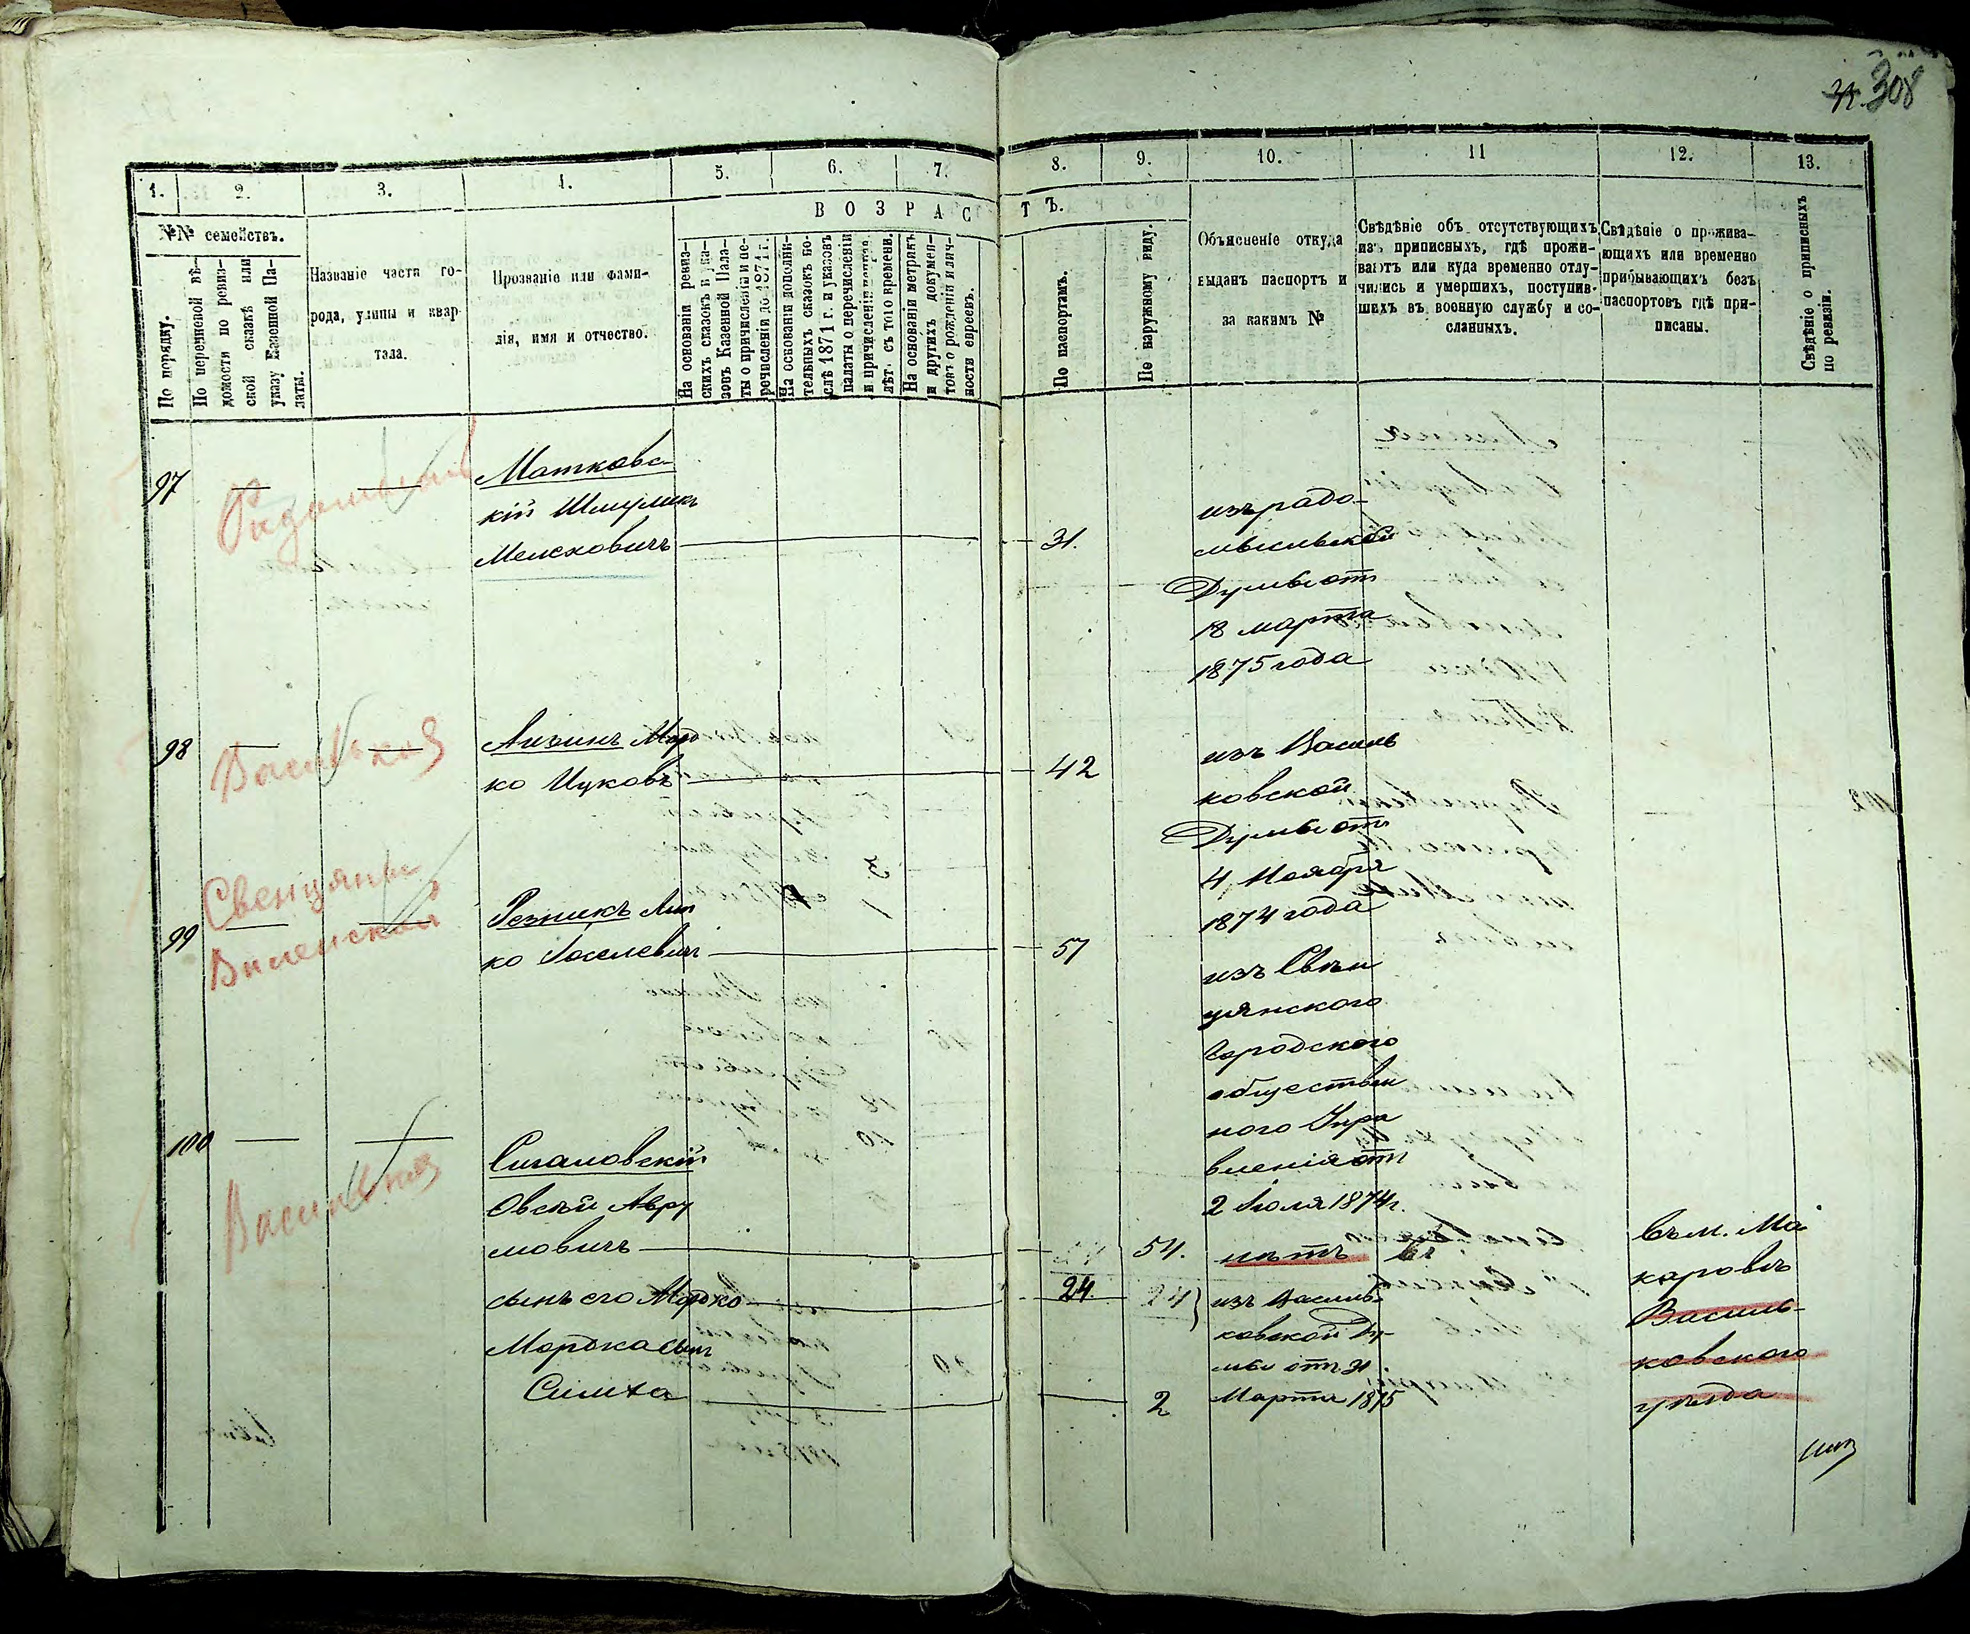 308
1.
2.
3.
4.
5.
6.
7.
8.
9.
10.
11
12.
13.
№№ семействъ.
ВОЗРАСТЪ.
По порядку.
По перечневой вѣ-
домости по ревиз-
ской сказкѣ или
указу Казенной Па-
латы.
Названіе части го-
рода, улицы и квар
тала.
Прозваніе или фами-
лія, имя и отчество.
На основаніи ревиз-
скихъ сказокъ и ука-
зовъ Казенной Пала-
ты о причисленіи и пе-
речисленіи до 1871 г.
На основаніи дополни-
тельныхъ сказокъ по-
слѣ 1871 г. и указовъ
палаты о перечисленіи
и причисленіи
лѣт. съ того времени.
На основаніи метрикъ
и другихъ докумен-
товъ о рожденіи и лич-
ности евреевъ.
По паспортамъ.
По наружному виду.
Объясненіе откуда
выданъ паспортъ и
за какимъ №
Свѣдѣніе объ отсутствующихъ
изъ приписныхъ, гдѣ прожи-
ваютъ или куда временно отлу-
чились и умершихъ, поступив-
шихъ въ военную службу и со-
сланныхъ.
Свѣдѣніе о прожива-
ющихъ или временно
прибывающихъ безъ
паспортовъ гдѣ при-
писаны.
Свѣдѣніе о приписныхъ
по ревизіи.
97
Радомысль
Матковс-
кій Шмуликъ
Мелеховичъ
31.
изъ радо-
мысльской
Думы от
18 марта
1875 года
98
Васильков
Лизинъ Мордко
ко Ицковъ
42
изъ Василь
ковской
Думы от
4 Ноября
1874 года
Свенцяны
Виленской
99
Резникъ Лип
ко Іоселевич
57
изъ Свѣн
цянского
Городского
обществен
ного Упра
вленія от
2 Іюля 1874 г.
100
Васильков
Сигаловскій
Овсѣй Авру
мовичъ
54.
нѣтъ
въ м. Ма
каровѣ
Василь-
ковского
уѣзда
сынъ его Мордко
24.
24
изъ Василь-
ковской Ду-
мы отъ 31
Марта 1875
Мордка сынъ
Симха
2